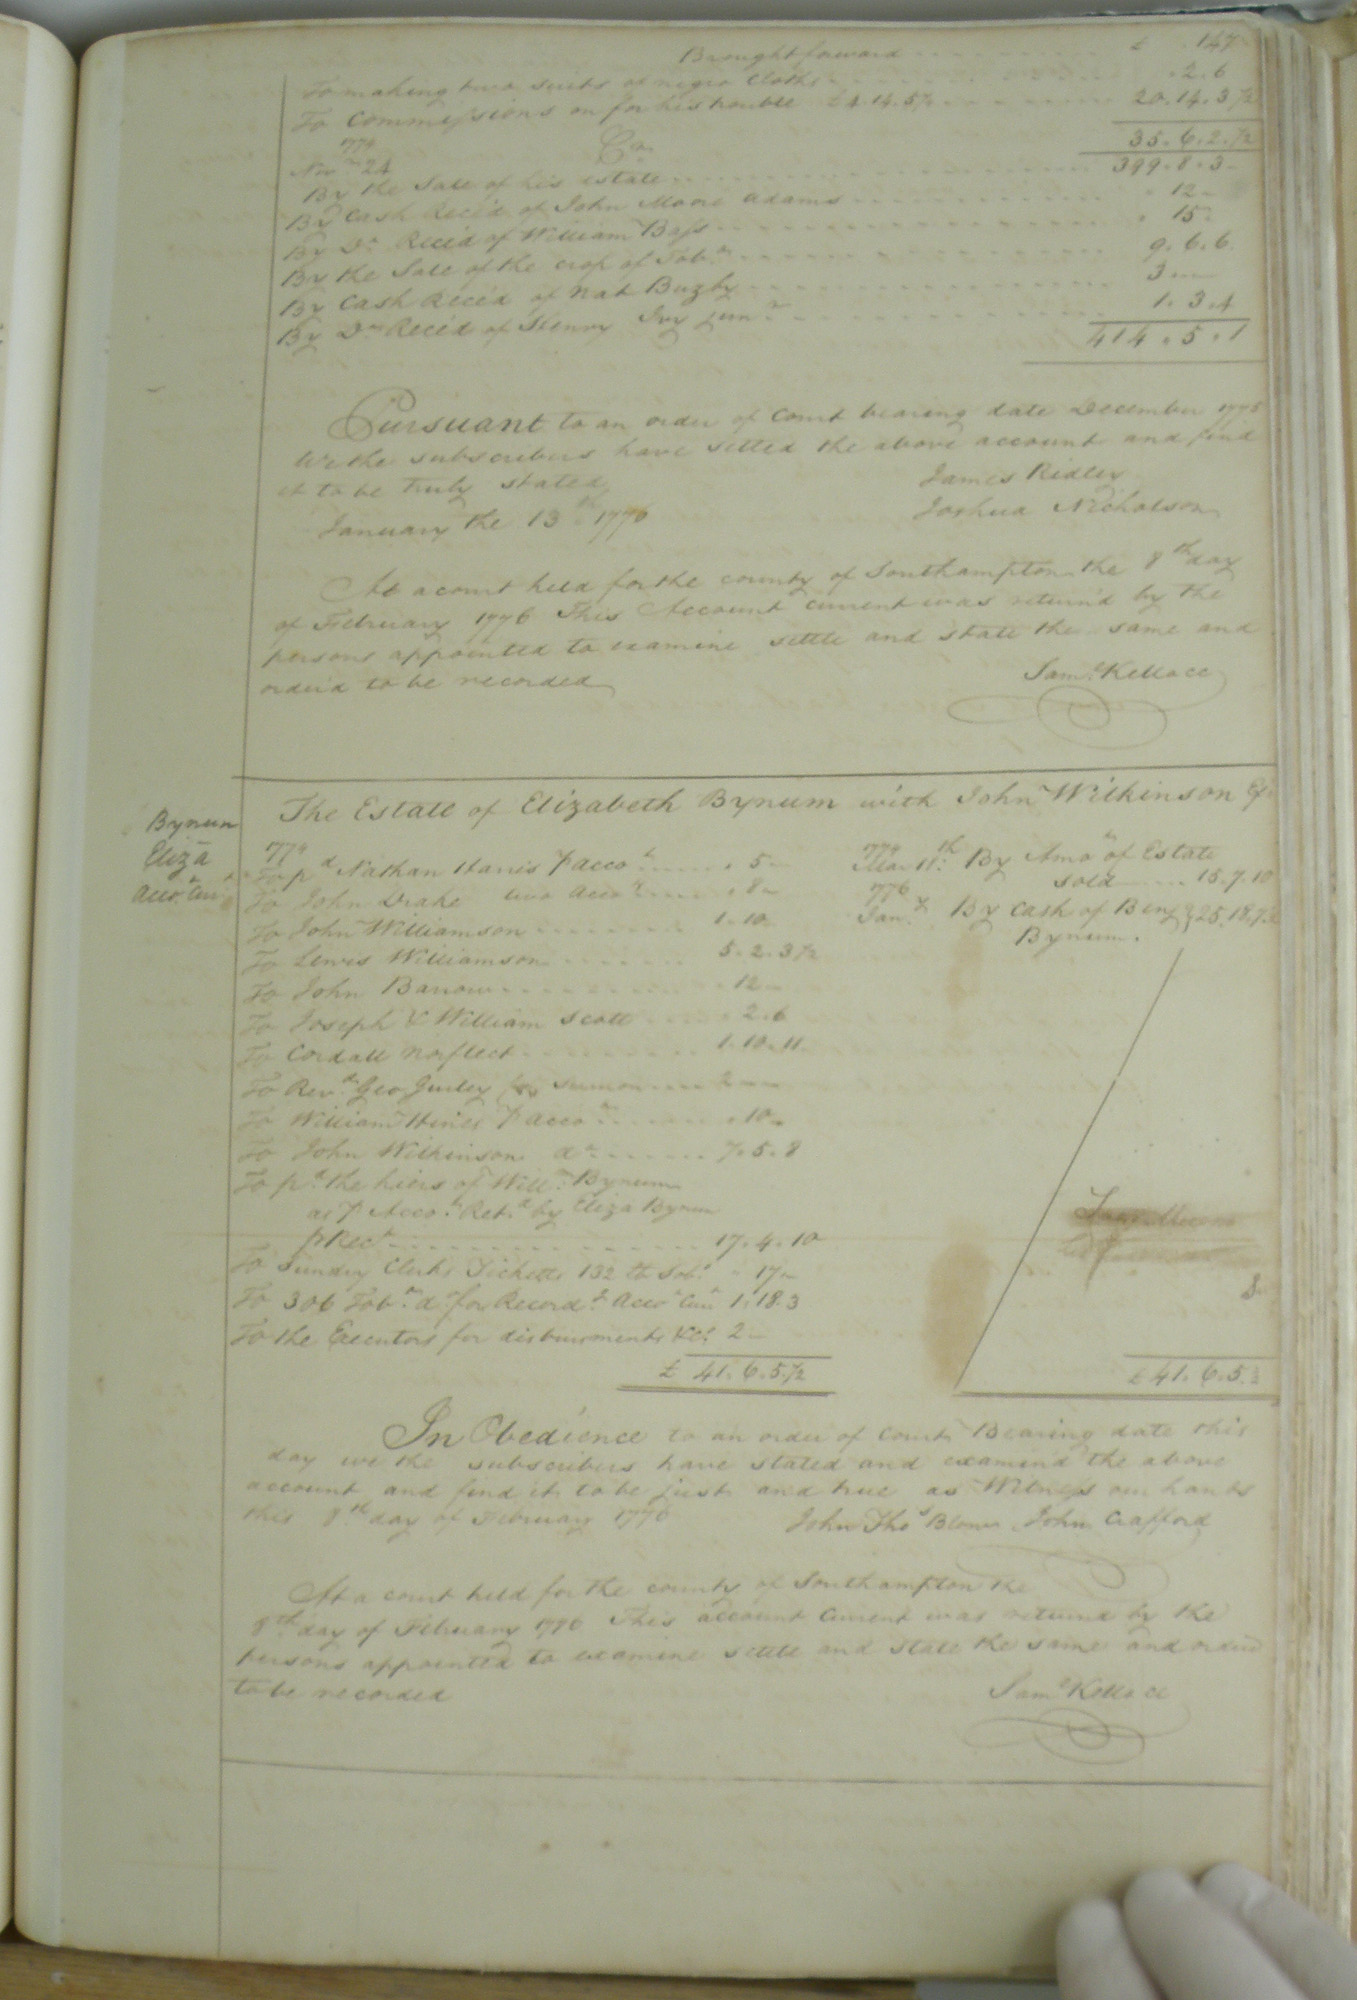 Brought forward £ 147
To making two suits of negro Cloths .2.6
To Commissions on for his trouble £4.14.5½ 20.14.3½
35.6.2.½
774 Cr
Novr 24
By the Sale of his estate 399.8.3
By Cash Reced of John Moore adams .12
By Do Reced of William Bass .15
By the Sale of the crop of Tobo 9.6.6
By Cash Reced of Nat Buzby 3
By Do Reced of Henry Ivy junr 1.3.4
414.5.1
Pursuant to an order of Court bearing date December 1775
We the subscribers have setled the above account and find
it to be truly stated James Ridley
January the 13th 1776 Joshua Nicholson
At a court held for the county of Southampton the 8th day
of February 1776 This Account current was return'd by the
persons appointed to examine settle and state the same and
order'd to be recorded
Saml Kellace
The Estate of Elizabeth Bynum with John Wilkinson
Bynum
Eliza
Acco. Curt
774
To pd Nathan Harris p accot .5
To John Drake two accots .8
To John Williamson 1.10
To Lewis Williamson 5.2.3½
To John Barrow .12
To Joseph & William Scott .2.6
To Cordall Norflect 1.10.11
To Revd Geo Gurley for sermon 2
To William Hines p acco .10
To John Wilkinson do 7.5.8
To pd the hiers of Willm Bynum
as p Acco. Retd by Eliza Bynum
p Rect 17.4.10
To Sundry Clerks Ticketts 132 lb Tobo .17
To 306 Tobo do for Recordg Acco Curt 1.18.3
To the Executors for disbursments &c. 2
£ 41.6.5½
774
Mar 11th By Amot of Estate
sold 15.7.10
776
Jany By Cash of Benj 25.18.7½
Bynum.
£41.6.5½
In Obedience to an order of Court Bearing date this
day we the subscribers have stated and examind the above
account and find it to be just and true as Witness our hands
this 8th day of February 1776 John Thos Blow John Crafford
At a court held for the county of Southampton the
8th day of February 1776 This account Current was returnd by the
persons appointed to examine settle and state the same and orderd
to be recorded Saml Kellace